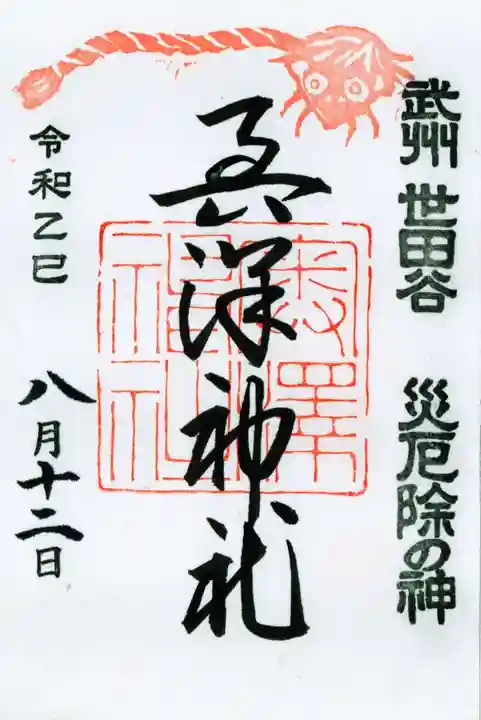 武州 世田谷 災厄除の神
奥澤神社
奥澤
神社
令和乙巳
八月十二日